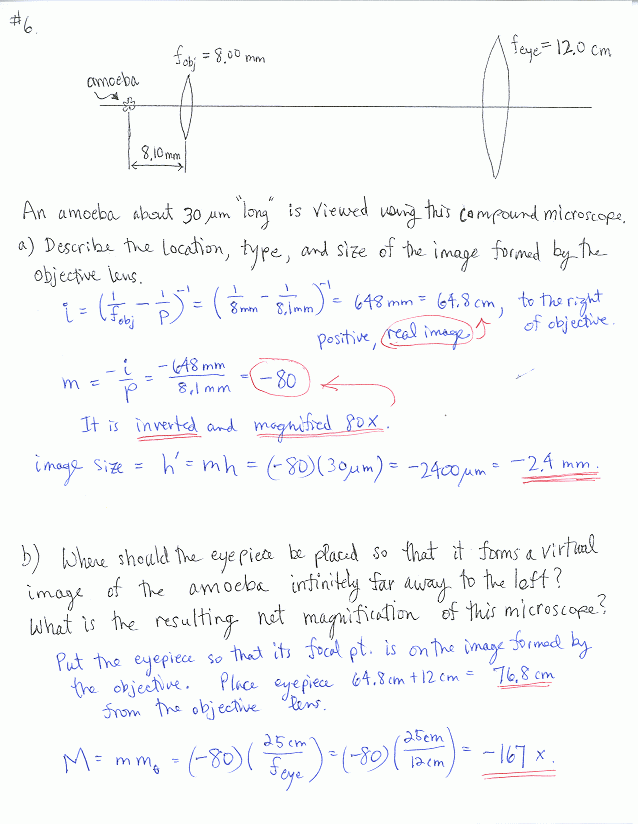 #6.
f_obj = 8.00 mm
f_eye = 12.0 cm
amoeba
8.10 mm
An amoeba about 30 μm "long" is viewed using this compound microscope.
a) Describe the location, type, and size of the image formed by the
objective lens.
i = (1/f_obj - 1/p)^-1 = (1/8mm - 1/8.1mm)^-1 = 648 mm = 64.8 cm, to the right
of objective.
positive, real image
m = -i/p = -648 mm/8.1 mm = -80
It is inverted and magnified 80x.
image size = h' = mh = (-80)(30μm) = -2400μm = -2.4 mm.
b) Where should the eyepiece be placed so that it forms a virtual
image of the amoeba infinitely far away to the left?
What is the resulting net magnification of this microscope?
Put the eyepiece so that its focal pt. is on the image formed by
the objective. Place eyepiece 64.8cm + 12 cm = 76.8 cm
from the objective lens.
M = m m_θ = (-80)(25 cm/f_eye) = (-80)(25cm/12cm) = -167 x.